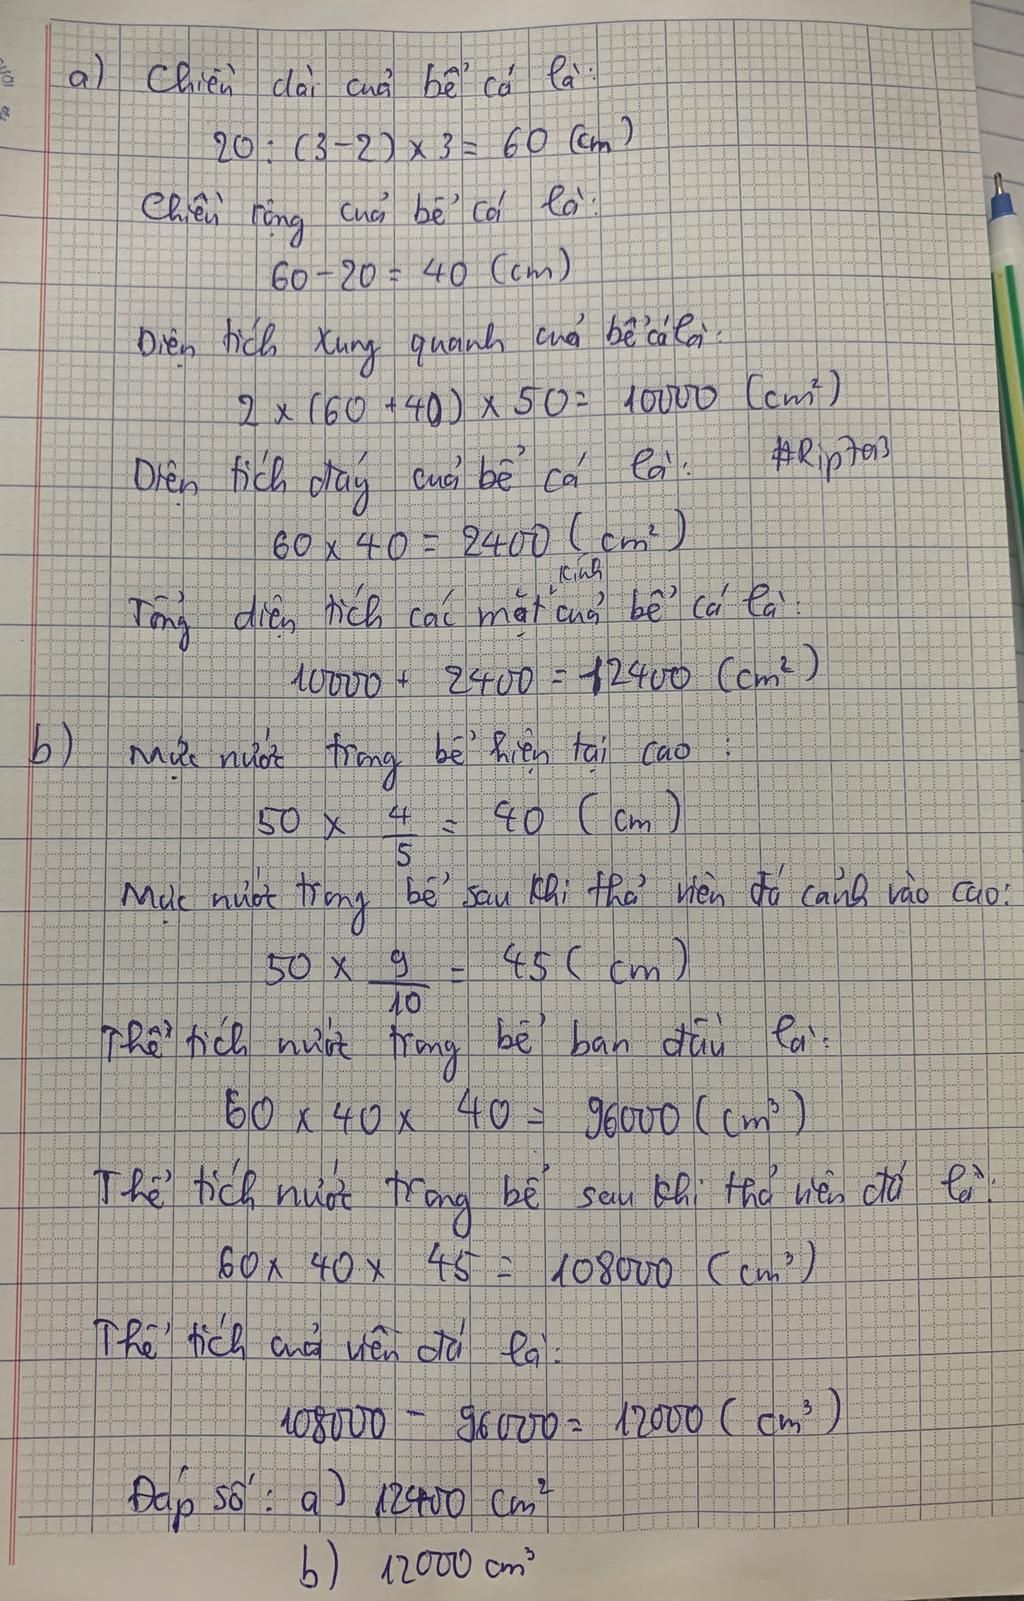 a) Chiều dài của bể cá là:
20 : (3-2) x 3 = 60 (cm)
Chiều rộng của bể cá là:
60 - 20 = 40 (cm)
Diện tích xung quanh của bể cá là:
2 x (60 + 40) x 50 = 10000 (cm²)
Diện tích đáy của bể cá là:
#Rip703
60 x 40 = 2400 (cm²)
Tổng diện tích các mặt kính của bể cá là:
10000 + 2400 = 12400 (cm²)
b) Mực nước trong bể hiện tại cao :
50 x 4/5 = 40 (cm)
Mực nước trong bể sau khi thả viên đá cảnh vào cao:
50 x 9/10 = 45 (cm)
Thể tích nước trong bể ban đầu là:
60 x 40 x 40 = 96000 (cm³)
Thể tích nước trong bể sau khi thả viên đá là:
60 x 40 x 45 = 108000 (cm³)
Thể tích của viên đá là:
108000 - 96000 = 12000 (cm³)
Đáp số : a) 12400 cm²
b) 12000 cm³